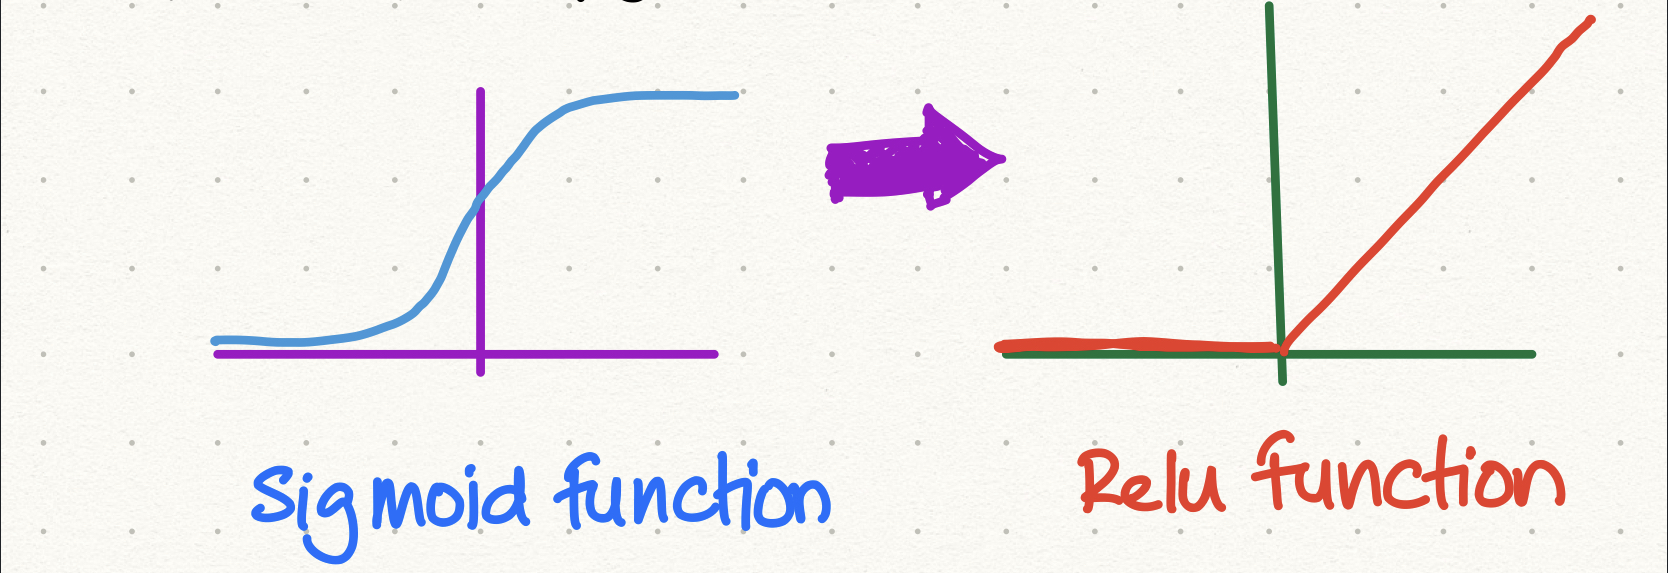 Sigmoid function
Relu function